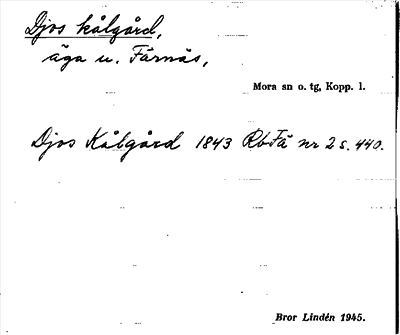 Djos kålgård,
äga u. Färnäs,
Mora sn o. tg, Kopp. l.
Djos Kålgård 1843 RbFä nr 2 s. 440.
Bror Lindén 1945.